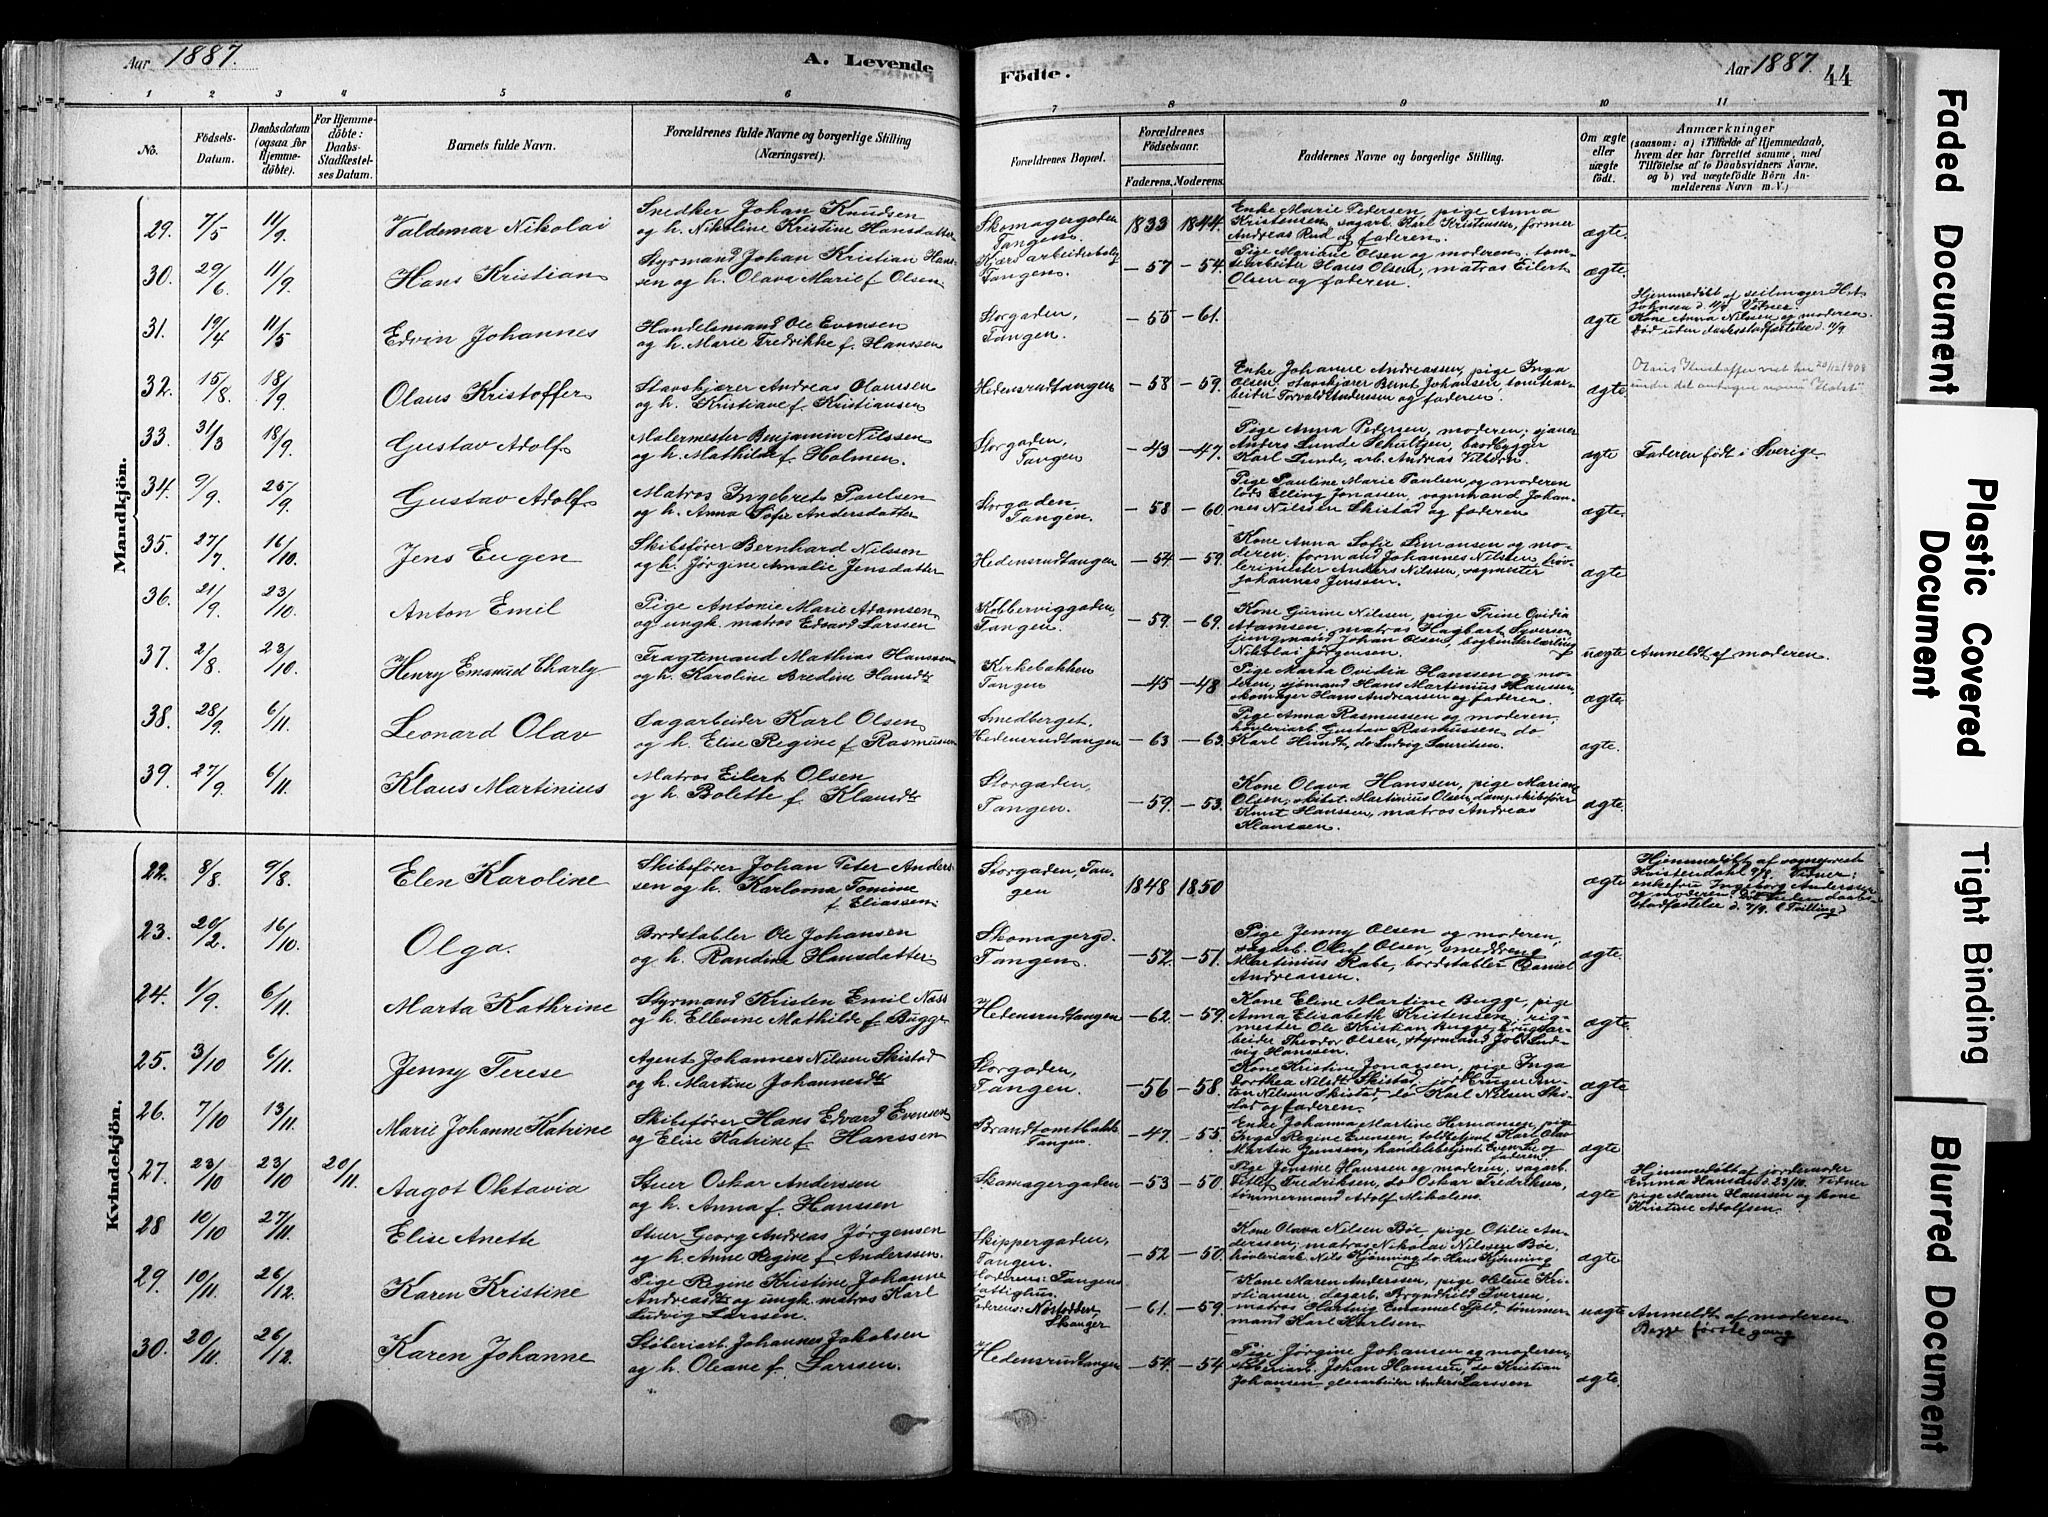 Aar 1887.
A. Levende
Födte.
Aar 1887.
44
1 2 3 4 5 6 7 8 9 10 11
No.
Födsels-
Datum.
Daabsdatum
(ogsaa for
Hjemme-
døbte).
For Hjemme-
døbte:
Daabs-
Stadfæstel-
ses Datum.
Barnets fulde Navn.
Forældrenes fulde Navne og borgerlige Stilling
(Næringsvei).
Forældrenes Bopæl.
Forældrenes
Födselsaar.
Faderens. Moderens.
Faddernes Navne og borgerlige Stilling.
Om ægte
eller
uægte
født.
Anmærkninger
(saasom: a) i Tilfælde af Hjemmedaab,
hvem der har forrettet samme, med
Tilføielse af to Daabsvidners Navne,
og b) ved uægtefødte Børn An-
melderens Navn m. V.)
Mandkjön.
29. 7/5 11/9. Valdemar Nikolai
Snedker Johan Knudsen
og h. Nikoline Kristine Hansdatter
Skomagergaden
Tangen.
1833 1844.
Enke Marie Pedersen, pige Anna
Kristensen, sagarb. Karl Kristensen, former
Andreas Rud og faderen.
ægte.
30. 29/6 11/9. Hans Kristian
Styrmand Johan Kristian Han-
sen og h. Olava Marie f. Olsen
Tangen.
-57 -54.
Pige Mariane Olsen og moderen, tom-
tearbeider Hans Olsen, matros Eilert
Olsen og faderen.
ægte.
31. 19/4 11/5 Edvin Johannes
Handelsmand Ole Evensen
og h. Marie Fredrikke f. Hanssen
Storgaden,
Tangen.
-55 -61.
ægte
Hjemmedöbt af seilmager H. A.
Johnsen d. 11/5. Vidner
Kone Anna Nilsen og moderen.
Död uden daabsstadfæstelse d. 11/9
32. 15/8. 18/9. Olaus Kristoffer
Stavskjærer Andreas Olaussen
og h. Kristiane f. Kristiansen
Hedensrudtangen
-58 -59.
Enke Johanne Andreassen, pige Inga
Olsen, stavskjærer Bernt Johansen tomtear-
beider Torvald Anderssen og faderen.
ægte.
33. 31/3 18/9. Gustav Adolf
Malermester Benjamin Nilssen
og h. Mathilde f. Holmen.
Storgaden,
Tangen
-43 -47.
Pige Anna Pedersen, moderen,
Anders Lunde Schultzen, baadbygger
Karl Lunde, arb. Andreas
ægte
Faderen født i Sverige.
34. 9/9. 25/9. Gustav Adolf
Matros Ingebret Paulsen
og h. Anna Sofie Andersdatter
Storgaden,
Tangen.
-58 -60.
Pige Pauline Marie Paulsen og moderen
lods Elling Jonassen, vognmand Johan-
nes Nilssen Skistad og faderen
ægte.
35. 27/7. 16/10. Jens Eugen
Skibsfører Bernhard Nilssen
og h. Jørgine Amalie Jensdatter
Hedensrudtangen
-54 -59.
Kone Anna Sofie Simonsen og mo-
deren, formand Johannes Nilsen, høv-
lerimester Anders Nilssen, sagmester
Johannes Jenssen.
ægte
36. 21/9. 23/10. Anton Emil
Pige Antonie Marie Adamsen
og ungk. matros Edvard Larssen
Kobberviggaden,
Tangen.
-59. -69.
Kone Gurine Nilsen, pige Trine Ovidia
Adamsen, matros Hagbart Syversen,
jungmand Johan Olsen, bogbinderlærling
Nikolai Jørgensen.
uægte
Anmeldt af moderen.
37. 2/8 23/10. Henry Emanuel Charly
Fragtemand Mathias Hanssen
og h. Karoline Bredine Hansdtr
Kirkebakken
Tangen
-45 -48
Pige Marta Ovidia Hanssen og mo-
deren, sjømand Hans Martinius Hanssen,
skomager Hans Andreassen og faderen.
ægte.
38. 28/9 6/11. Leonard Olav
Sagarbeider Karl Olsen
og h. Elise Regine f. Rasmussen
Smedberget,
Hedensrudtangen
-63 -63.
Pige Anna Rasmussen og moderen,
høvleriarb. Gustav Rasmussen do
Karl Hundt, do Ludvig Lauritsen.
ægte.
39. 27/9. 6/11. Klaus Martinius
Matros Eilert Olsen
og h. Bolette f. Klausdtr
Storgaden,
Tangen.
-59 -53.
Kone Olava Hanssen, pige Mariane
Olsen, Martinius Olsen, dampskibsfører
Knut Hanssen, matros Andreas
Klaussen.
ægte.
Kvindekjön.
22. 8/8. 9/8. Elen Karoline
Skibsfører Johan Peter Anders-
sen og h. Karlovna Tomine
f. Eliassen
Storgaden, Tan-
gen
1848 1850
ægte
Hjemmedöbt af sognepræst
Kristendahl 9/8. Vidner:
enkefru Ingeborg Anderssen
og moderen. Død uden daabs-
stadfæstelse d. 7/9. (Tvilling)
23. 20/2. 16/10. Olga.
Bordstabler Ole Johansen
og h. Randine Hansdatter.
Skomagergd.
Tangen.
-52. -51.
Pige Jenny Olsen og moderen,
sagarb. Oluf Olsen, smeddreng
Martinius Rabe, bordstabler Daniel
Andreassen.
ægte.
24. 1/9. 6/11. Marta Kathrine
Styrmand Kristen Emil Næss
og h. Ellevine Mathilde f. Bugge
Hedensrudtangen
-62. -59.
Kone Eline Martine Bugge, pige
Anna Elisabeth Kristensen, rig-
mester Ole Kristian Bugge, brugsar-
beider Theodor Olsen, styrmand Joh. Lud-
vig Hanssen.
ægte.
25. 3/10 6/11. Jenny Terese
Agent Johannes Nilsen Skistad
og h. Martine Johannesdtr
Storgaden,
Tangen.
-56 -58.
Kone Kristine Jonassen, pige Inga
Dorthea Nilsdtr Skistad, jordbruger An-
ton Nilsen Skistad, do Karl Nilsen Ski-
stad og faderen.
ægte
26. 7/10 13/11. Marie Johanne Katrine
Skibsfører Hans Edvard Evensen
og Elise Katrine f. Hanssen
Brandtomtbakk.
Tangen.
-47. -55.
Enke Johanna Martine Hermansen, pige
Inga Regine Evensen, toldbetjent Karl Olav
Martin Jensen, handelsbetjent Even Lie og
faderen.
ægte
27. 23/10 23/10 20/11. Aagot Oktavia
Stuer Oskar Anderssen
og h. Anna f. Hanssen
Skomagergaden
-53 -50.
Pige Jensine Hanssen og moderen, sagarb.
Ditlef Fredriksen, do Oskar Fredriksen,
tømmermand Adolf Mikalsen.
ægte
Hjemmedöbt af jordemoder
Emma Hansen d. 23/10. Vidner
pige Maren Hanssen og kone
Kristine Adolfsen.
28 10/10 27/11. Elise Anette
Stuer Georg Andreas Jørgensen
og h. Anne Regine f. Anderssen.
Skippergaden,
Tangen.
-52 -50.
Kone Olava Nilsen Bøe, pige Otilie An-
derssen, matros Nikolai Nilssen Bøe,
høvleriarb. Nils Kjønning, do Hans Kjønning
ægte
29. 10/11. 26/12. Karen Kristine
Pige Regine Kristine Johanne
Andreasdtr og ungk. matros Karl
Ludvig Larssen.
Moderens: Tangens
Fattighus.
Faderens: Næstodden
Skanger
-61. -59.
Kone Maren Anderssen, pige Helene Kri-
stiansen, dagarb. Bryndhild Iversen,
matros Hartvig Emanuel Fjeld, tømmer-
mand Karl Karlsen.
uægte
Anmeldt af moderen
Begge første gang
30. 20/11. 26/12. Karen Johanne
Støberiarb. Johannes Jakobsen
og h. Oleane f. Larssen.
Hedensrudtangen
-54. -54
Pige Jørgine Johansen og moderen,
støberiarb. Johan Hanssen, do Kristian
Johansen glasarbeider Anders Larssen
ægte.
Faded Document
Plastic Covered
Document
Tight Binding
Blurred Document